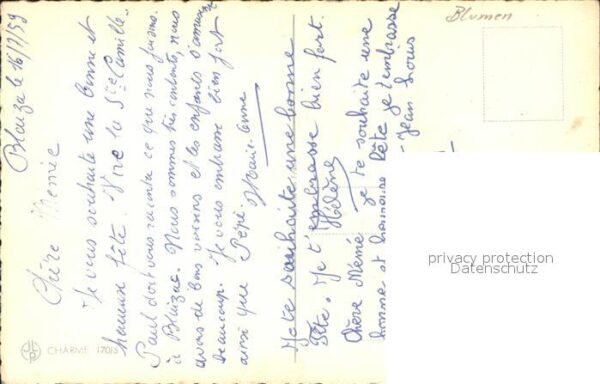 Blauzac le 16/7/59
Chère Mémée
Je vous souhaite une bonne et
heureuse fête. Vive la Ste Camille.
Paul doit vous raconter ce que nous faisons
à Blauzac. Nous sommes très contents, nous
avons de bons voisins et les enfants s'amusent
beaucoup. Je vous embrasse bien fort
ainsi que Pépé.
Marie-Anne
Je te souhaite une bonne
fête. Je t'embrasse bien fort.
Hélène
Chère Mémé je te souhaite une
bonne et heureuse fête je t'embrasse
Jean Louis
Blumen
CHARME 17013
privacy protection
Datenschutz